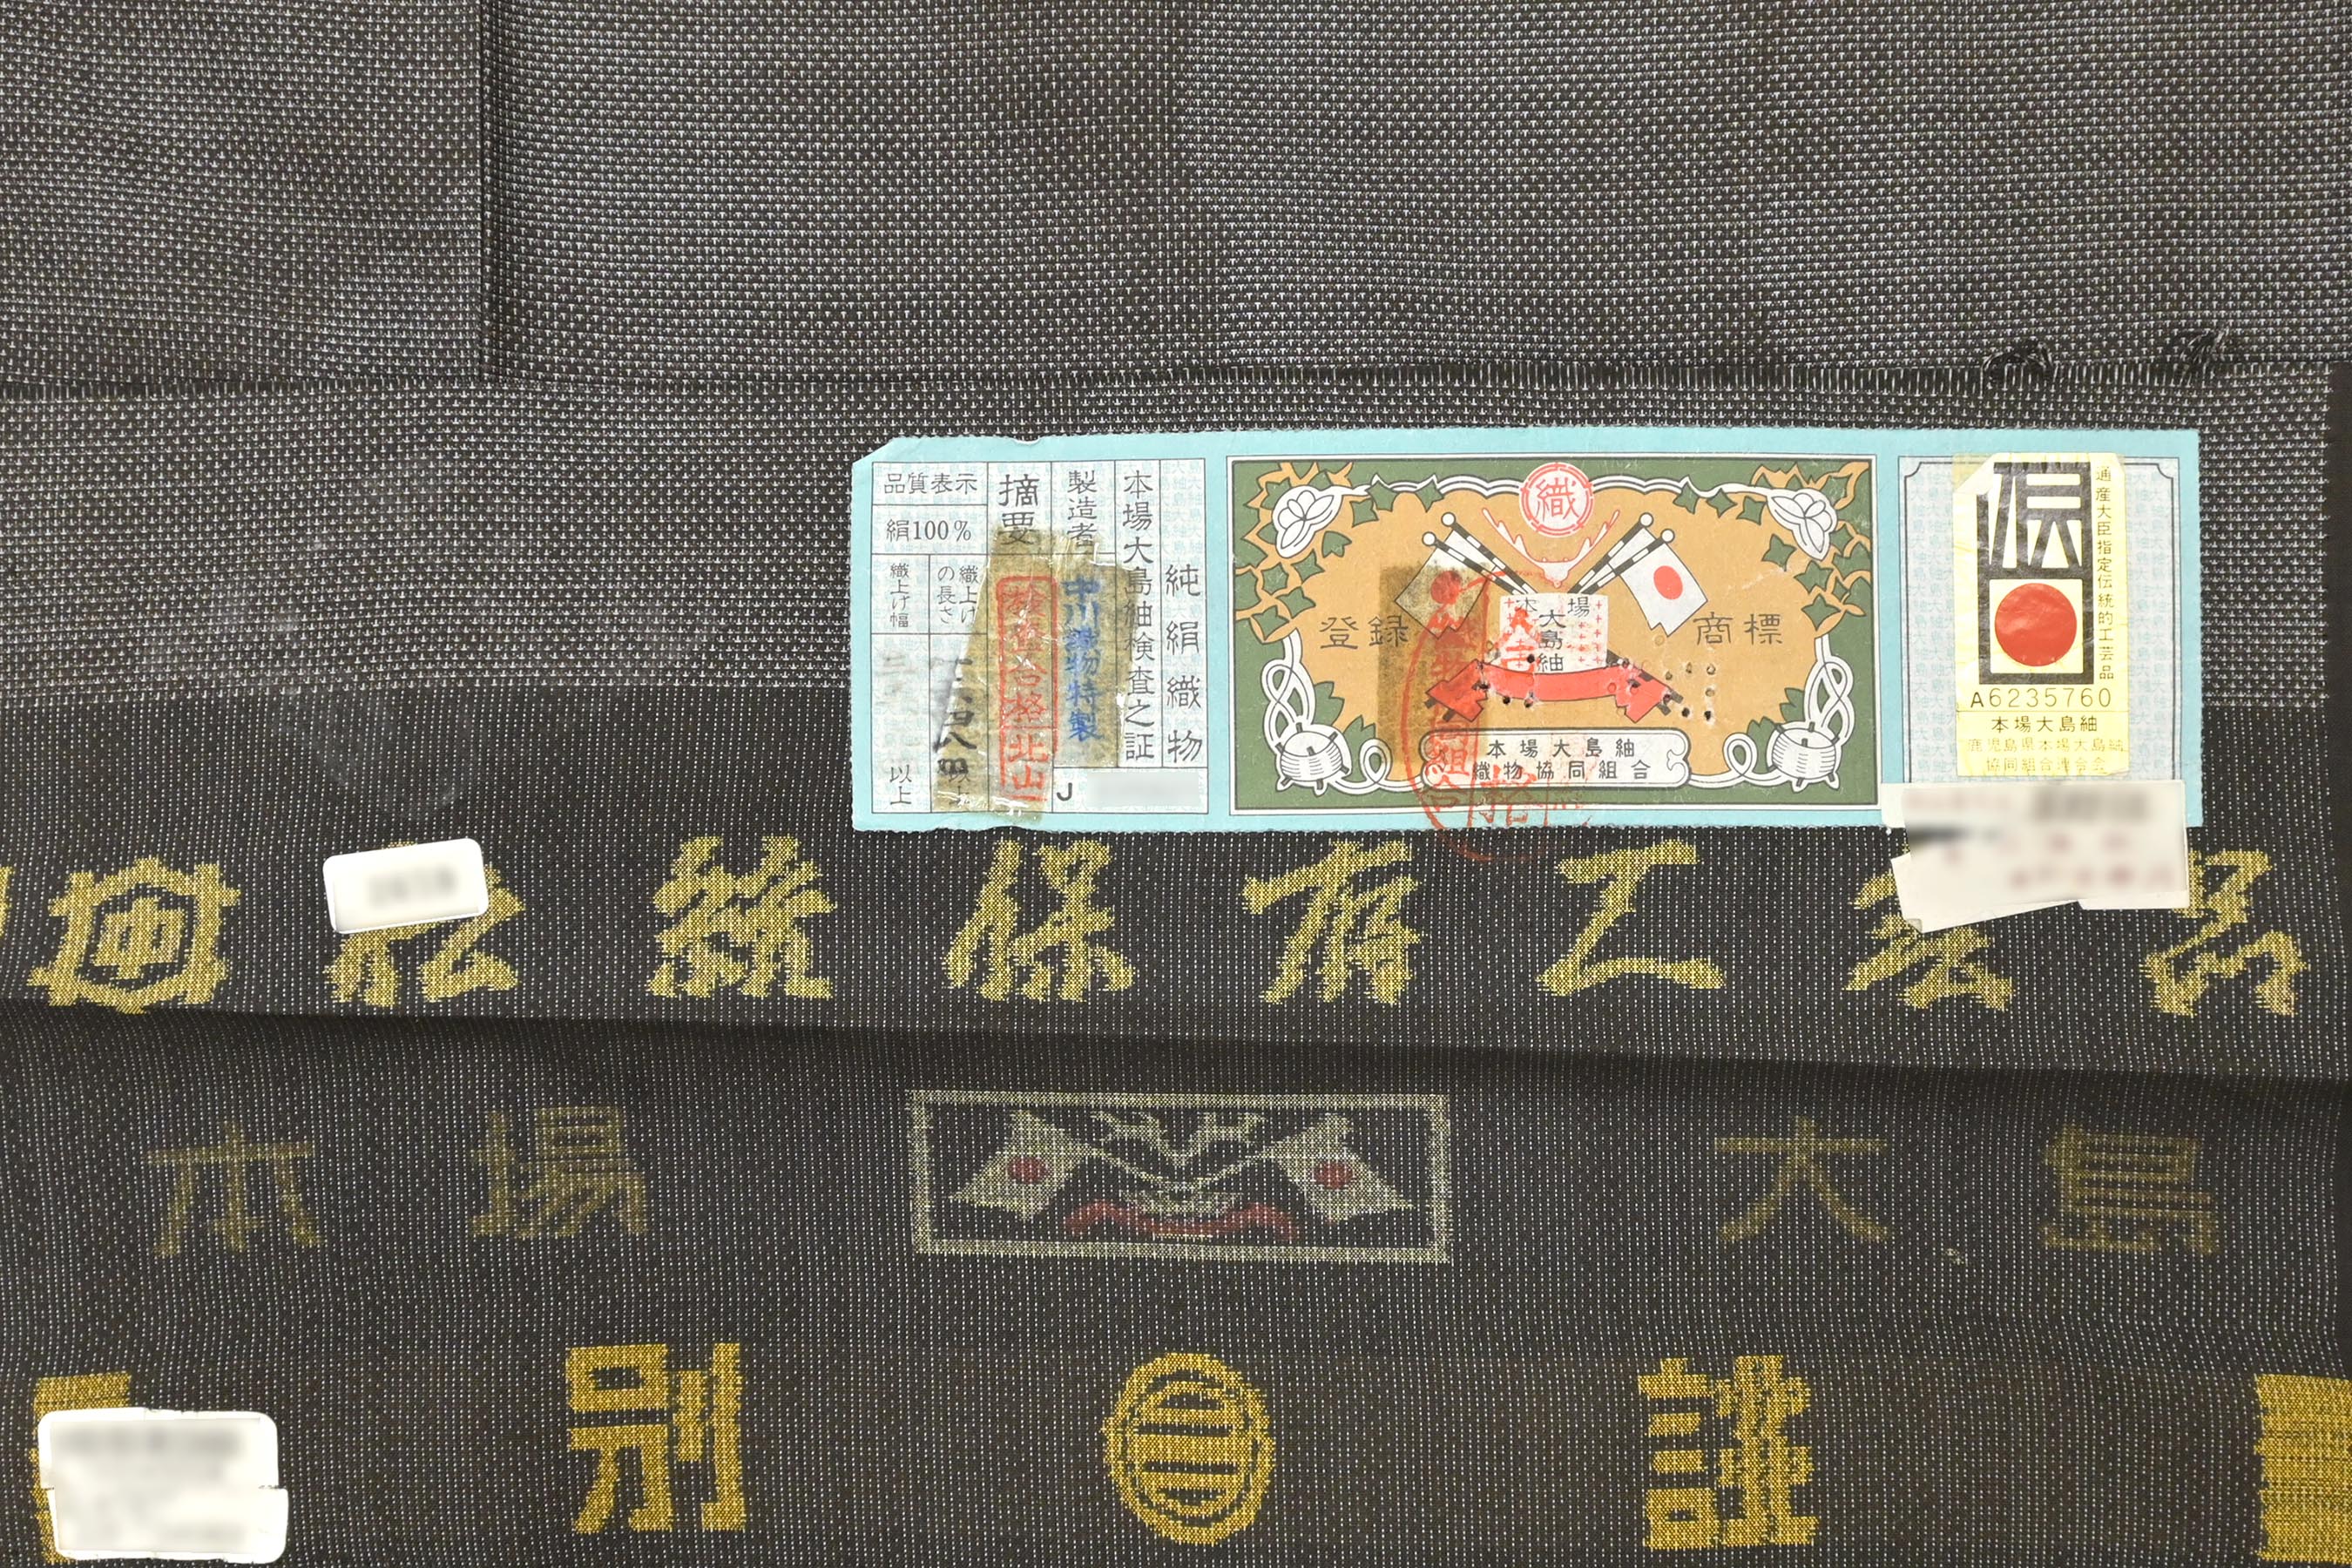 純絹織物
本場大島紬検査之証
製造者
中川織物特製
摘要
検査合格北山
品質表示
絹100%
織上げ
の長さ
以上
織上げ幅
以上
J
織
登録
商標
本場
大島紬
本場大島紬
織物協同組合
伝
通産大臣指定伝統的工芸品
A6235760
本場大島紬
鹿児島県本場大島紬
協同組合連合会
統保存工芸品
本場
大島
別
誂